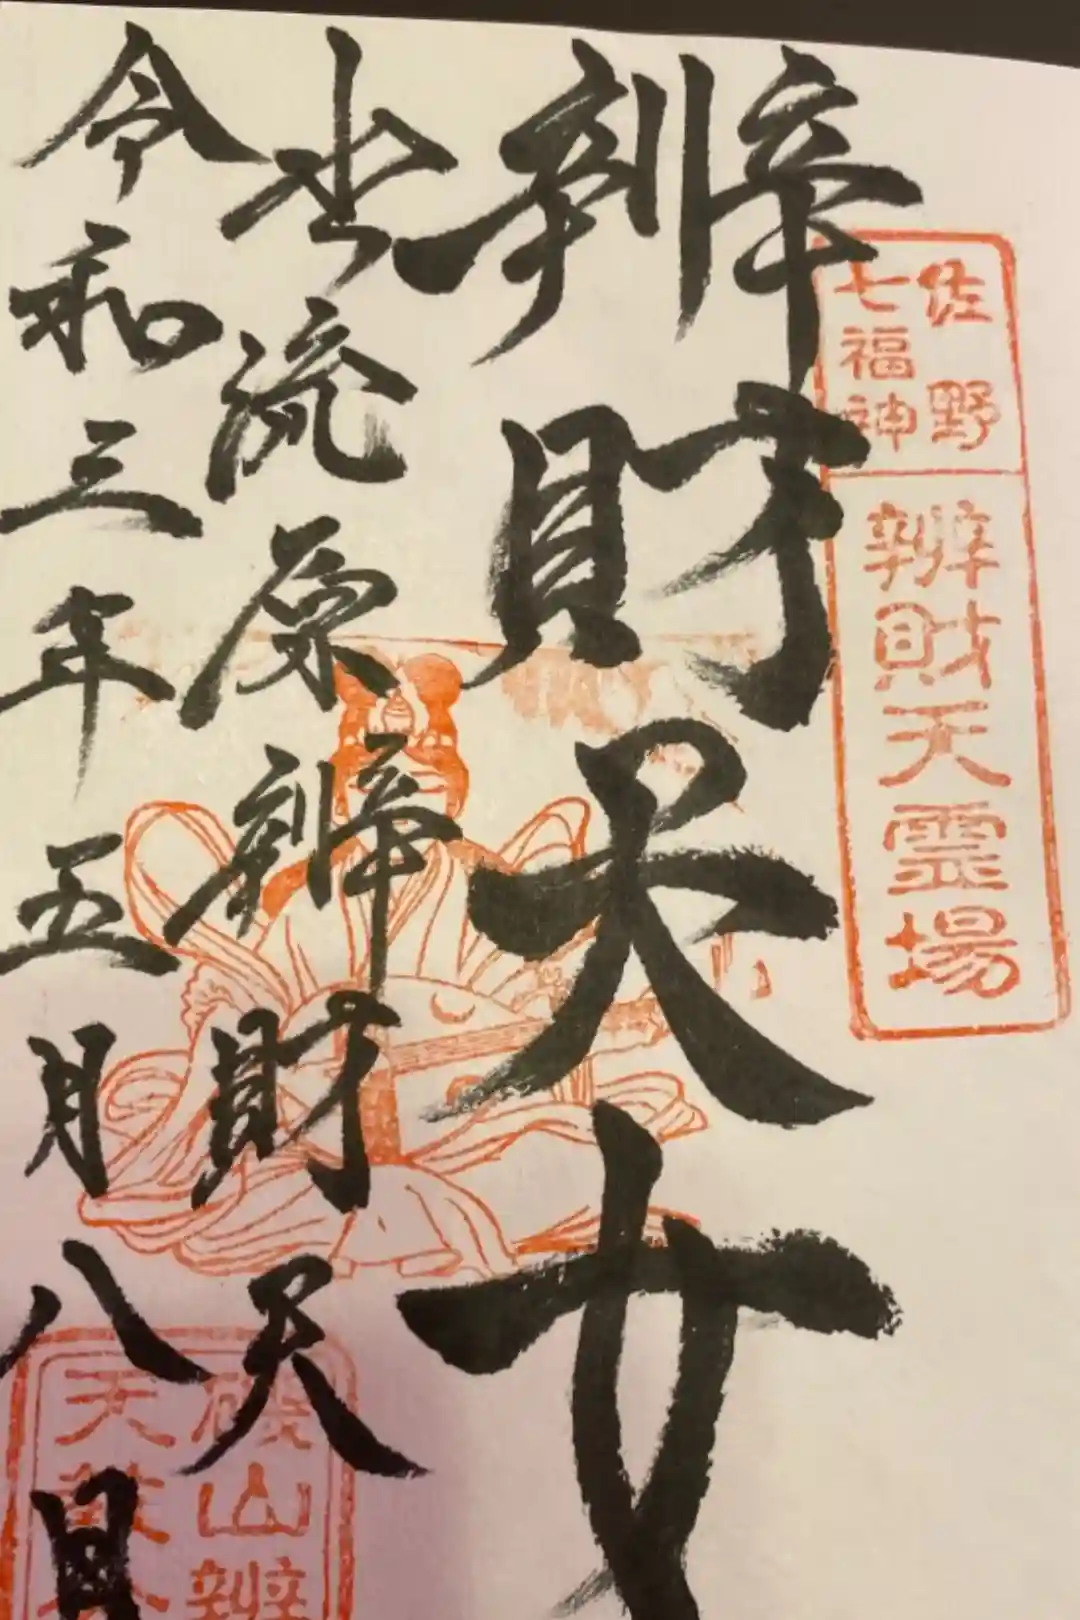 佐野
七福神
辨財天霊場
辨財天女
出流原辨財天
令和三年五月八日
磯山辨
天